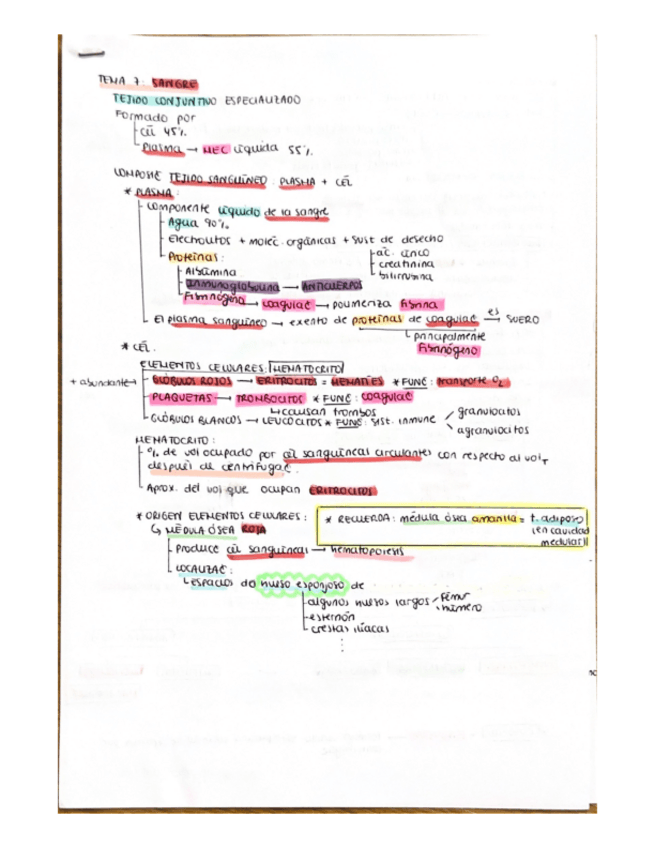 TEMA 7: SANGRE
TEJIDO CONJUNTIVO ESPECIALIZADO
Formado por
cél 45%
Plasma → MEC líquida 55%
COMPOSIC TEJIDO SANGUÍNEO: PLASMA + CÉL
* PLASMA:
Componente líquido de la sangre
Agua 90%
Electrolitos + moléc. orgánicas + sust de desecho
Proteínas:
ac. úrico
creatinina
bilirrubina
Albúmina
Inmunoglobulina → ANTICUERPOS
Fibrinógeno → coagulac → polimeriza fibrina
El plasma sanguíneo → exento de proteínas de coagulac → es SUERO
principalmente
Fibrinógeno
* CÉL.
ELEMENTOS CELULARES: HEMATOCRITO
+ abundante → GLÓBULOS ROJOS → ERITROCITOS = HEMATÍES * FUNC: transporte O₂
PLAQUETAS → TROMBOCITOS * FUNC: coagulac
↳ causan trombos
GLÓBULOS BLANCOS → LEUCOCITOS * FUNC: sist. inmune
granulocitos
agranulocitos
HEMATOCRITO:
% de vol ocupado por cél sanguíneas circulantes con respecto al vol T
después de centrifugac.
Aprox. del vol que ocupan ERITROCITOS
* ORIGEN ELEMENTOS CELULARES:
↳ MÉDULA ÓSEA ROJA
* RECUERDA: médula ósea amarilla = t. adiposo
(en cavidad
medular)
Produce cél sanguíneas → hematopoyesis
LOCALIZAC:
espacios de hueso esponjoso de
algunos huesos largos
fémur
húmero
esternón
crestas ilíacas